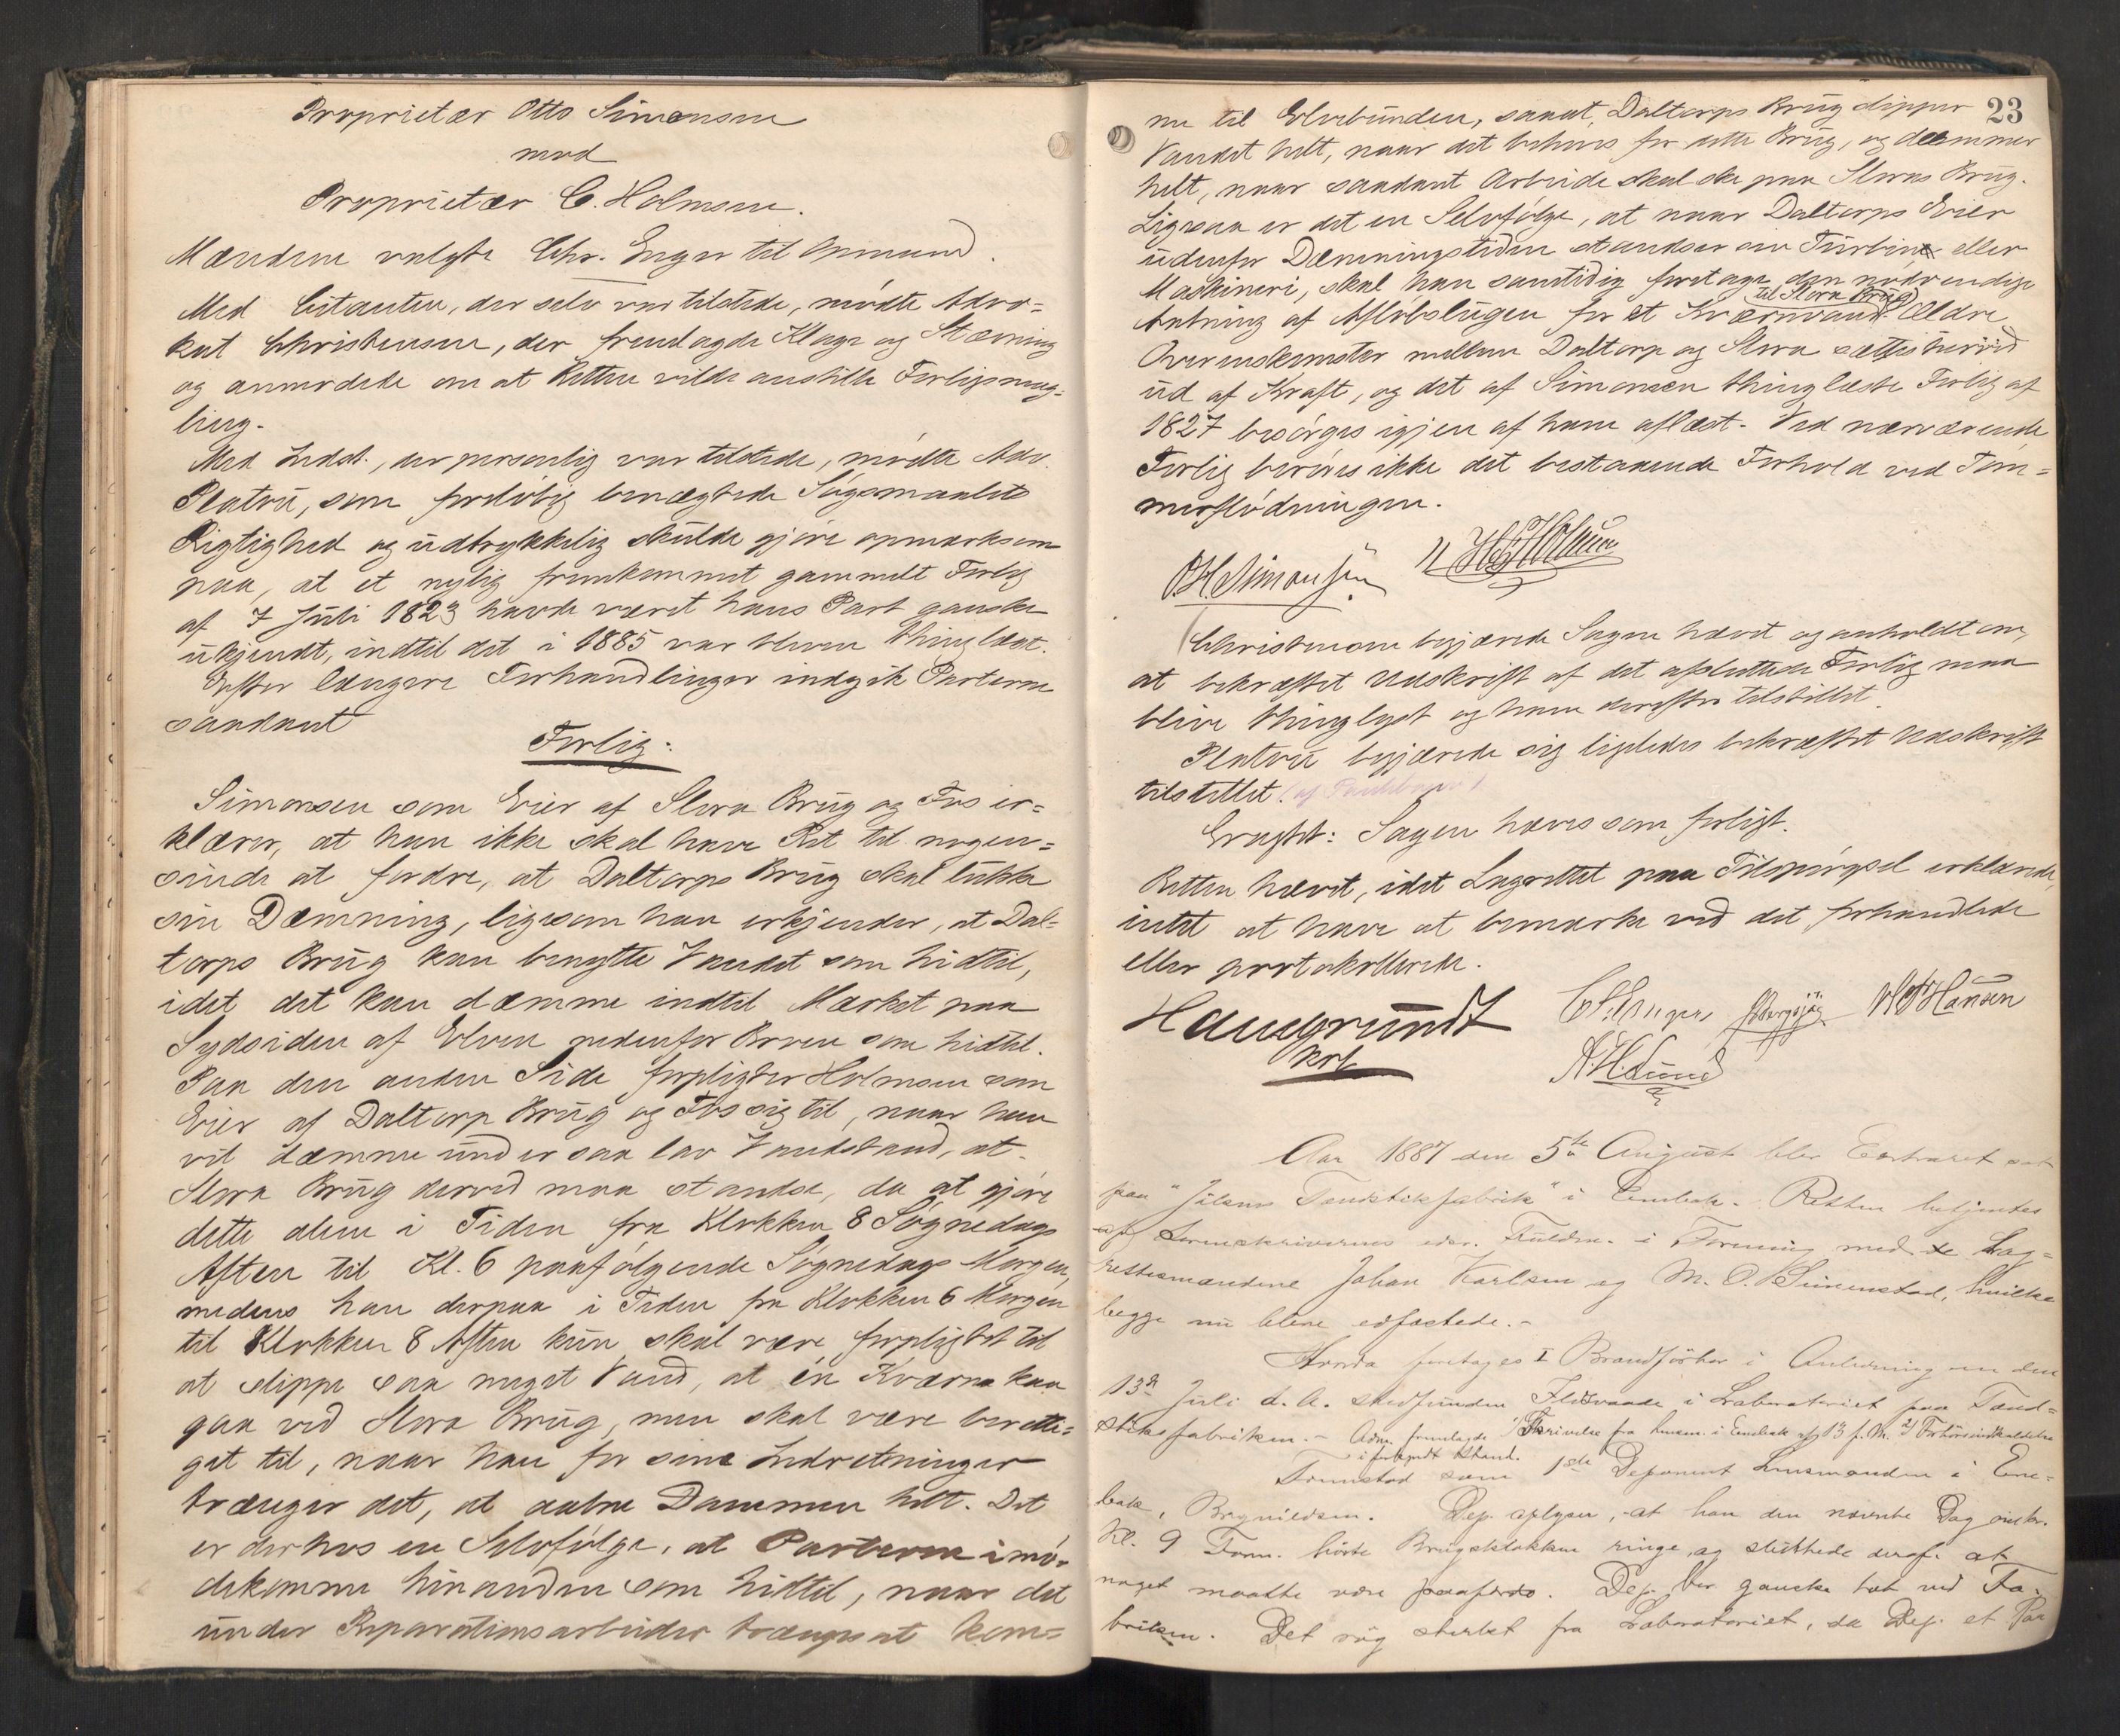 Proprietær Otto Simonsen
mod
Proprietær C. Holmsen.
Mændene valgte Chr. Enger til Opmand.
Med Citanten, der selv var tilstede, mødte Advo=
kat Christensen, der fremlagde Klage og Stævning
og anmodede om at Retten vilde anstille Forligsmæg=
ling.
Med Indst., der personlig var tilstede, mødte Adv.
Platou, som foreløbig benægtede Søgsmaalets
Rigtighed og udtrykkelig skulde gjøre opmærksom
paa, at et nylig fremkommet gammelt Forlig
af 7 Juli 1823 havde været hans Part ganske
ukjendt, indtil det i 1885 var bleven thinglæst.
Efter længere Forhandlinger indgik Parterne
saadant
Forlig:
Simonsen som Eier af Slora Brug og Fos er=
klærer, at han ikke skal have Ret til nogen=
sinde at fordre, at Daltorps Brug skal lukke
sin Dæmning, ligesom han erkjender, at Dal=
torps Brug kan benytte Vandet som hidtil,
idet det kan dæmme indtil Mærket paa
Sydsiden af Elven nedenfor Broen som hidtil.
Paa den anden Side forpligter Holmsen som
Eier af Daltorp Brug og Fos sig til, naar han
vil dæmme under saa lav Vandstand, at
Slora Brug derved maa standse, da at gjøre
dette alene i Tiden fra Klokken 8 Søgnedags
Aften til Kl. 6 paafølgende Søgnedags Morgen,
medens han derpaa i Tiden fra Klokken 6 Morgen
til Klokken 8 Aften kun skal være forpligtet til
at slippe saa meget Vand, at én Kværn kan
gaa ved Slora Brug, men skal være beretti=
get til, naar han for sine Indretninger
trænger det, at aabne Dammen helt. Det
er derhos en Selvfølge, at Parterne imø=
dekomme hinanden som hidtil, naar det
under Reparationsarbeider trænges at kom=
23
me til Elvebunden, samt, Daltorps Brug slipper
Vandet helt, naar det behøves for dette Brug, og dæmmer
helt, naar saadant Arbeide skal ske paa Sloras Brug.
Ligesaa er det en Selvfølge, at naar Daltorps Eier
udenfor Dæmningstiden standser sin Turbine eller
Maskineri, skal han samtidig foretage den nødvendige
til Slora Brug
Aabning af Afløbslugen for et Kværnvand. Ældre
Overenskomster mellem Daltorp og Slora sættes herved
ud af Kraft, og det af Simonsen thinglæste Forlig af
1827 besørges igjen af ham aflæst. Ved nærværende
Forlig berøres ikke det bestaaende Forhold ved Tøm=
merflødningen.
O.H. Simonsen
Christensen begjærede Sagen hævet og anholdt om,
at bekræftet Udskrift af det afsluttede Forlig maa
blive thinglyst og ham derefter tilstillet.
Platou begjærede sig ligeledes bekræftet Udskrift
tilstillet.
Eragtet: Sagen hæves som forligt.
Retten hævet, idet Lagrettet paa Tilspørgsel erklærede,
intet at have at bemærke ved det forhandlede
eller protokollerede.
Haugrundt
kst
A.H. Lund
Hansen
Aar 1887 den 5te August blev Extraret sat
paa "Jølsens Tændstikfabrik" i Enebak. Retten betjentes
af Sorenskriverens edsv. Fuldm. i Forening med de Lag=
rettesmændene Johan Karlsen og M. O. Simenstad, hvilke
begge nu bleve edfæstede.-
Hvorda foretoges I Brandforhør i Anledning en den
13de Juli d. A. stedfunden Ildsvaade i Laboratoriet paa Tænd=
stikfabriken.- Adm. fremlagde 1) Skrivelse fra Lensm. i Enebak af 13 f. M. 2) Forhørsindkaldelse
i forkyndt Stand.
Fremstod som 1ste Deponent Lensmanden i Ene=
bak, Brynildsen. Dep. oplyser, at han den nævnte Dag omkr.
Kl. 9 Form. hørte Brugsklokken ringe, og sluttede deraf at
noget maatte være paafærde. Dep. bor ganske tæt ved Fa=
briken. Det røg stærkt fra Laboratoriet, da Dep. et Par